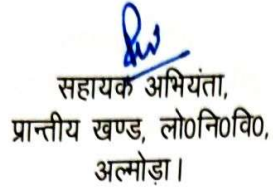 सहायक अभियंता,
प्रान्तीय खण्ड, लो0नि0वि0,
अल्मोड़ा।